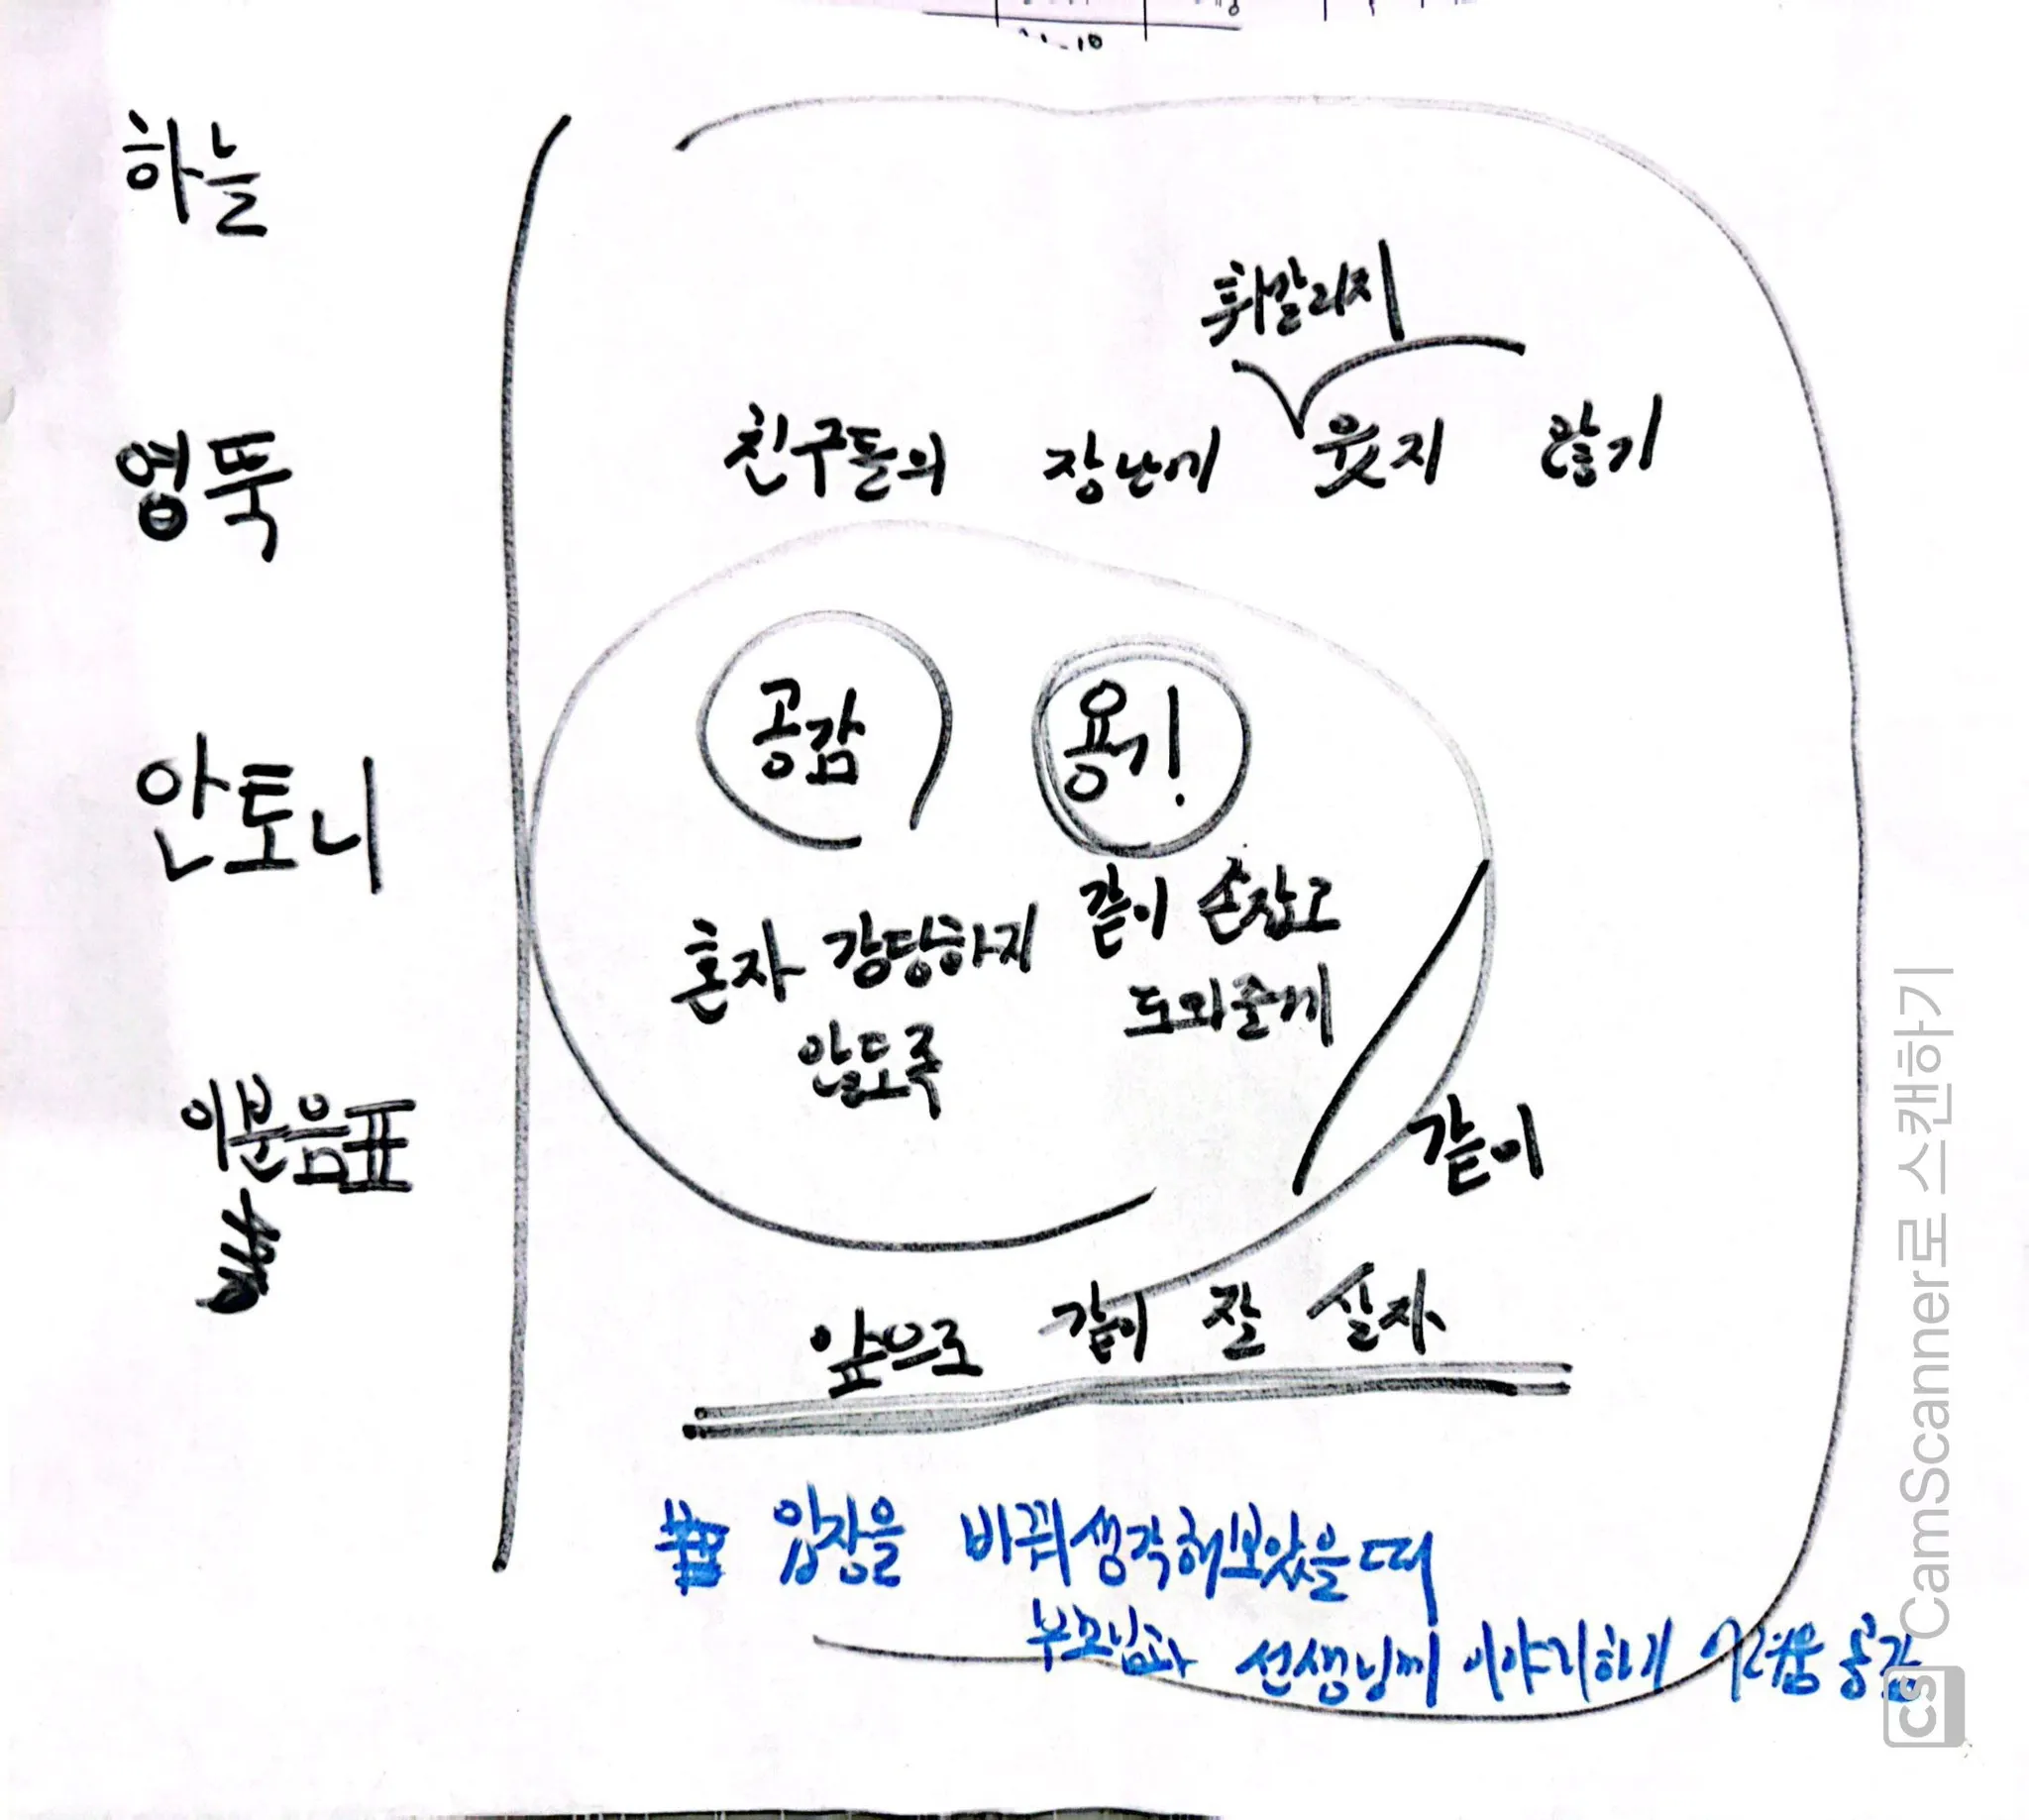 하늘
영뚝
안토니
이분음표
휘말리지
친구들의 장난에 웃지 않기
공감
용기!
혼자 감당하지
않도록
같이 손잡고
도와줄게
같이
앞으로 같이 잘 살자
입장을 바꿔생각해보았을때
부모님과 선생님께 이야기하기 어려움 공감
CS CamScanner로 스캔하기